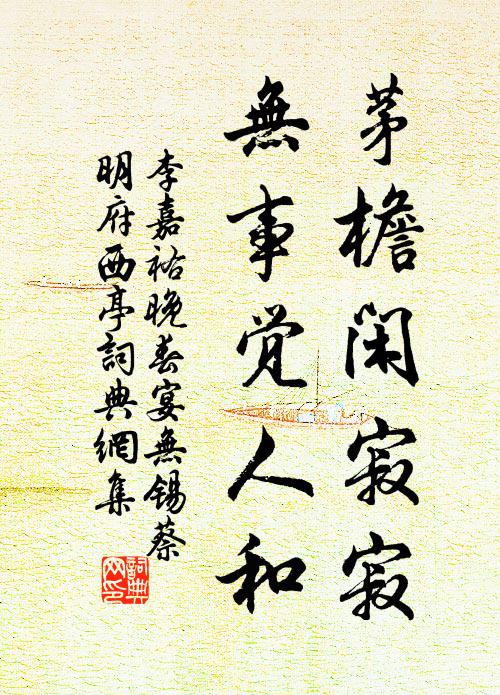 茅檐闲寂寂
無事觉人和
李嘉祐晚春宴無锡蔡
明府西亭詞典網集
詞典网印